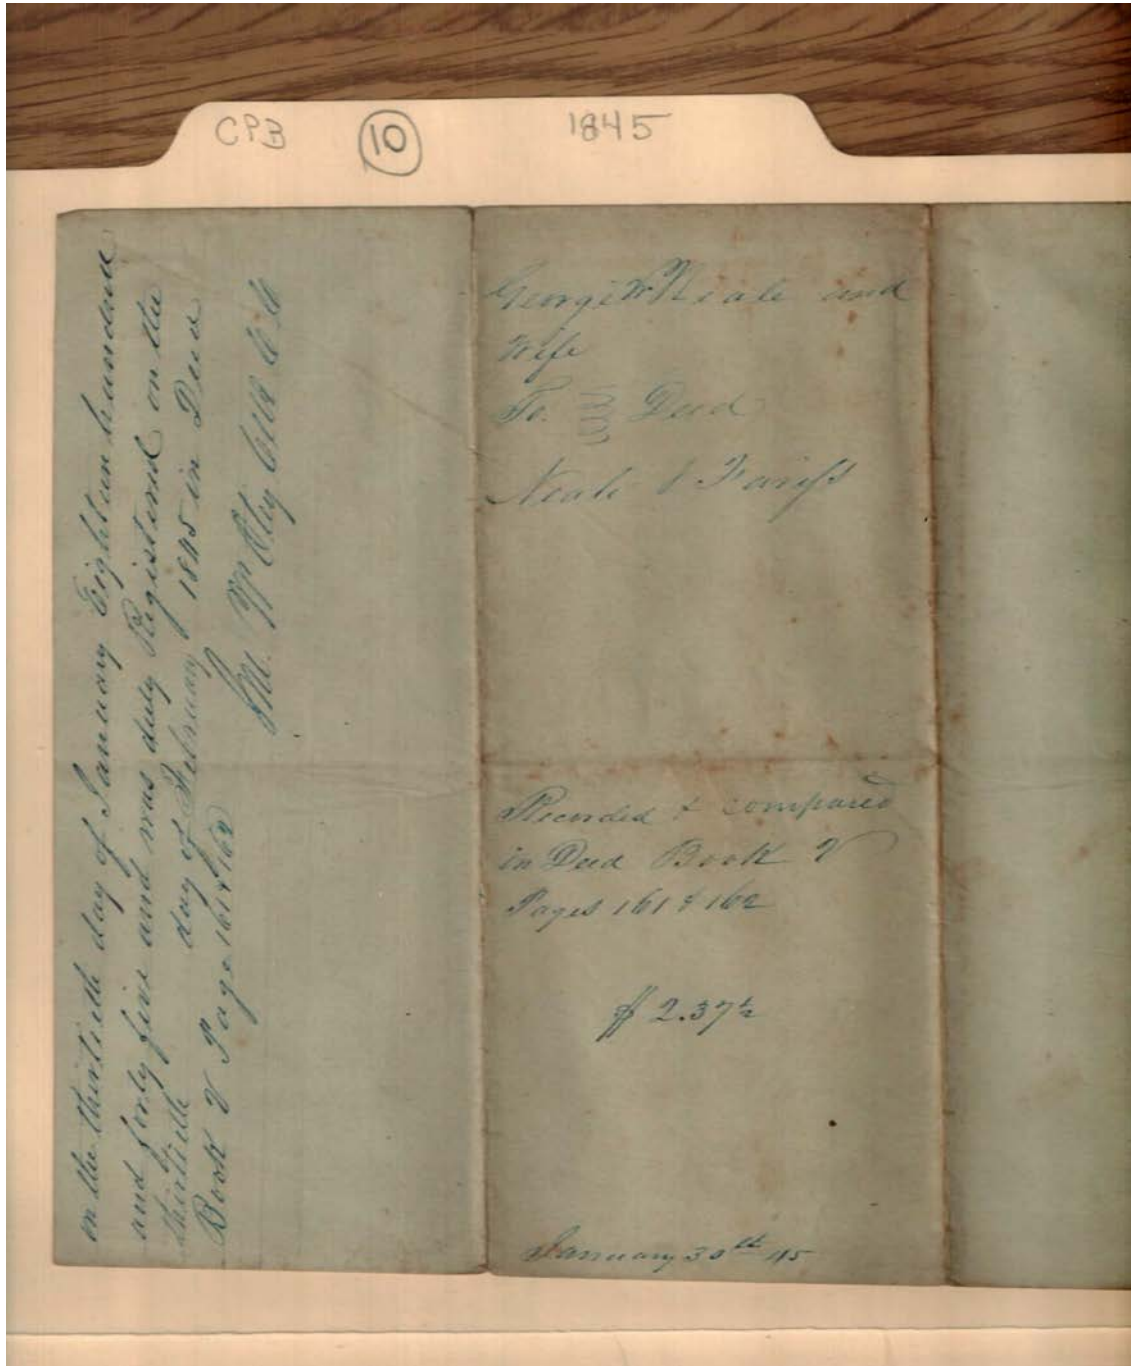 CPB 10 1845
on the thirtieth day of January Eighteen hundred
and forty five and was duly Registered on the
thirtieth day of February 1845 in Deed
Book V Page 161 & 162
Clk
George W Neale and
Wife
To. Deed
Neale & Fariss
Recorded & compared
in Deed Book V
Pages 161 & 162
$ 2.37½
January 30th 45